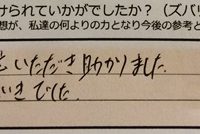 けられていかがでしたか？（ズバリ
想が、私達の何よりの力となり今後の参考と
いただき助かりました。
いきでした。